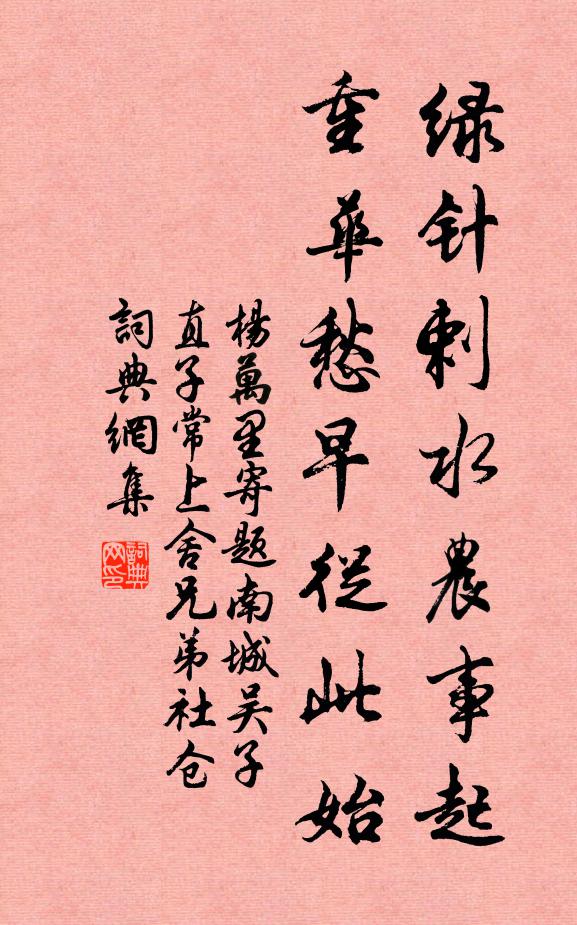 绿针刺水農事起
重華愁早從此始
楊萬里寄題南城吴子
直子常上舍兄弟社仓
詞典網集
詞典網印